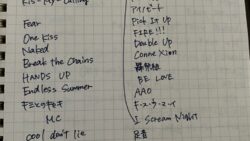 Kis-My-Calling
Fear
One Kiss
Naked
Break the Chains
HANDS UP
Endless Summer
キミとのキセキ
MC
cool don't lie
アイノビート
Pick It Up
FIRE!!!
Double Up
ConneXion
BE LOVE
AAO
F・x・y・z・イ
I Scream Night
足音